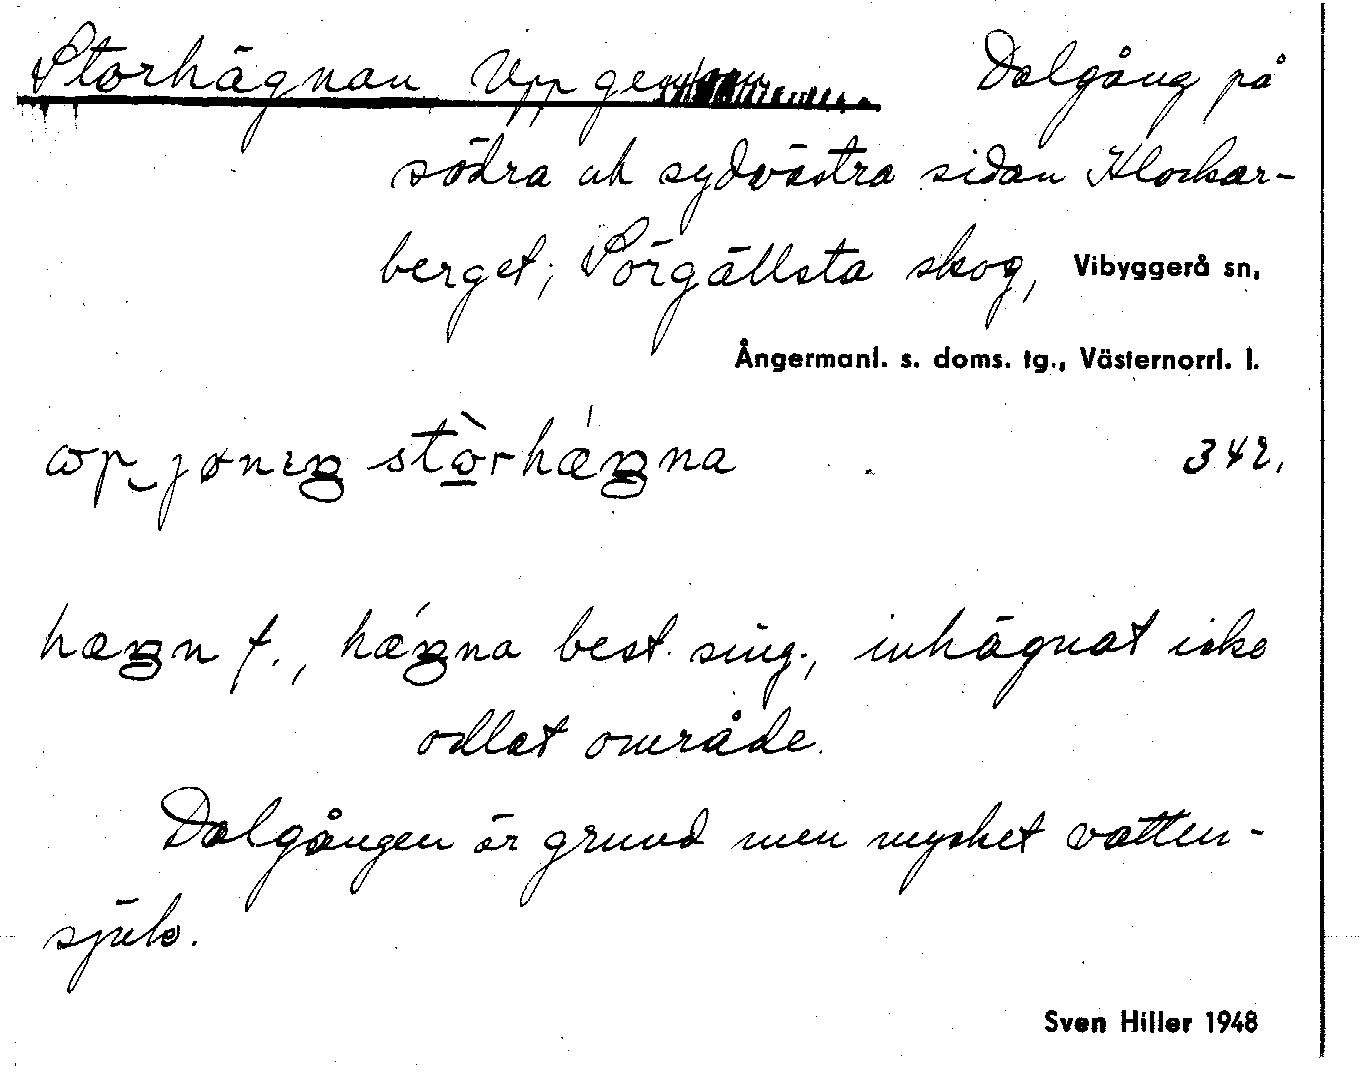 Storhägnan, Upp ge Dalgång på
södra och sydvästra sidan Klockar-
berget; Sörgällsta skog, Vibyggerå sn,
Ångermanl. s. doms. tg., Västernorrl. l.
342.
f., best. sing., inhägnat icke
odlat område.
Dalgången är grund men mycket vatten-
sjuk.
Sven Hiller 1948